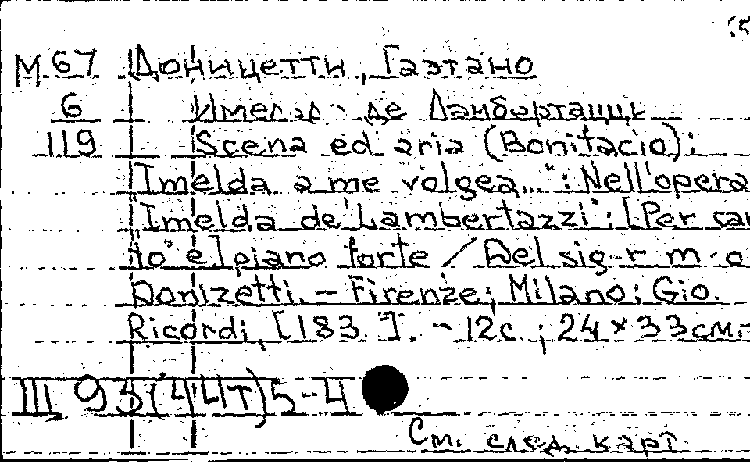 М 67 Доницетти, Гаэтано
6 Имельда де Ламбертацци
119 Scena ed aria (Bonifacio):
"Imelda a me volgea...": Nell'opera
"Imelda de Lambertazzi": [Per can
to e] piano forte / Del sig-r m-o
Donizetti. - Firenze; Milano: Gio.
Ricordi, [183 ]. - 12с.; 24×33см.
III 93(44т)5-4
См. след. карт.